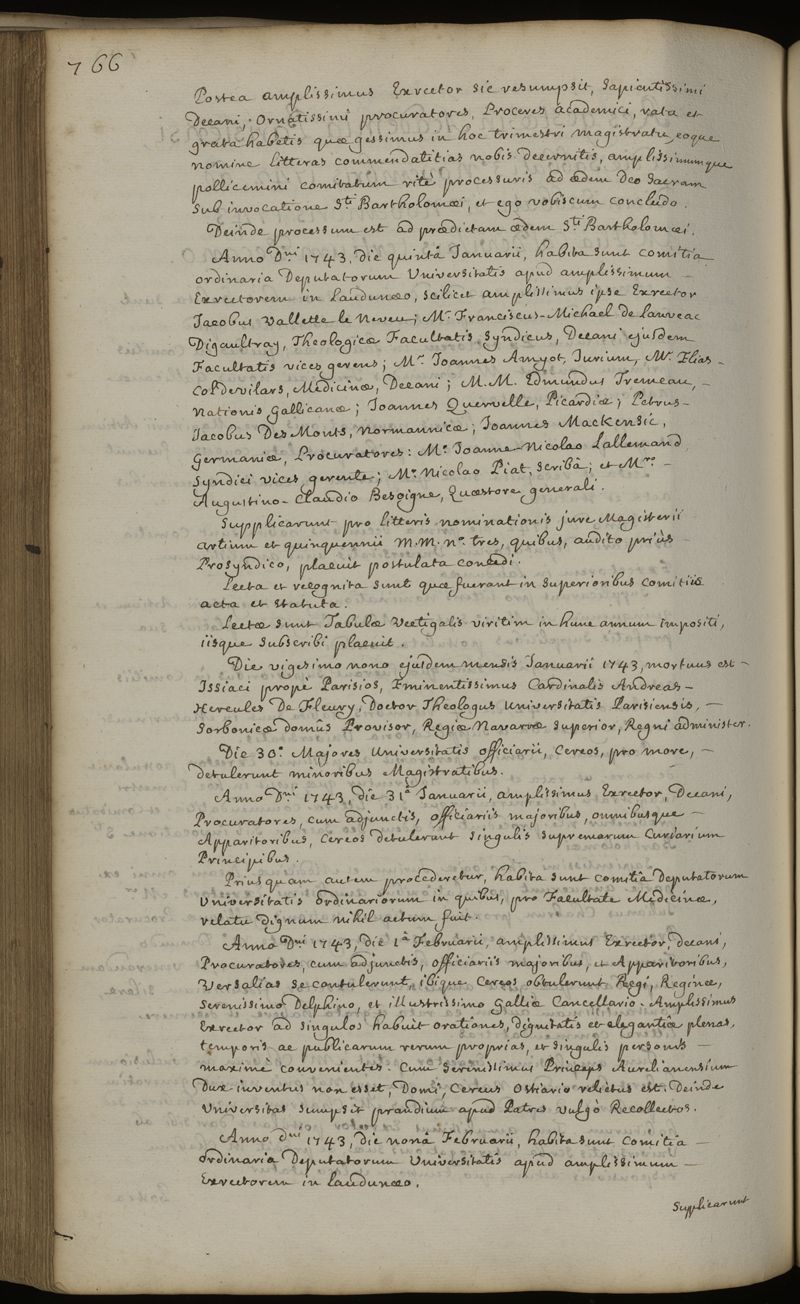 766
Postea amplissimus Exrector sic resumpsit, Sapientissimi
Decani, Ornatissimi procuratores, Proceres academici, rata et
grata habetis quæ gessimus in hoc trimestri magistratu, eoque
nomine litteras commendatitias nobis decernitis, amplissimumque
pollicemini comitatum ritè processuris ad ædem Deo Sacram
Sub invocatione Sti Bartholomæi, et ego vobiscum concludo.
Deinde processum est ad prædictam ædem Sti Bartholomæi.
Anno Dni 1743, die quintâ Januarii, habita sunt comitia
ordinaria Deputatorum Universitatis apud amplissimum
Exrectorem in Laudunæo, scilicet amplissimus ipse Exrector
Jacobus Vallette le Neveu; Mr. Franciscus-Michael de Lauveac
Digaultray, Theologicæ Facultatis Syndicus, Decani ejusdem
Facultatis vices gerens; Mr. Joannes Amyot, Jurium, Mr. Elias
Col de vilars, Medicinæ, Decani; M.M. Edmundus Tremeau, -
Nationis Gallicanæ; Joannes Quervelle, Picardiæ; Petrus-
Jacobus Des Monts, Normannicæ; Joannes Mackensie,
Germaniæ, Procuratores: Mo. Joanne-Nicolao Lallemand
Syndici vices gerente; Mo. Nicolao Piat, Scribâ; et Mro. -
Augustino-Claudio Besoigne, Quæstore generali.
Supplicarunt pro litteris nominationis jure Magisterii
artium et quinquennii M.M. no. tres, quibus, audito priùs
Prosyndico, placuit postulata concedi.
Lecta et recognita sunt quæ fuerant in superioribus Comitiis
acta et statuta.
Lectæ sunt Tabulæ Vectigalis viritim in hunc annum impositi,
iisque subscribi placuit.
Die vigesimo nono ejusdem mensis Januarii 1743, mortuus est -
Issiaci propè Parisios, Eminentissimus Cardinalis Andreas-
Hercules De Fleury, Doctor Theologus Universitatis Parisiensis, —
Sorbonicæ domûs Provisor, Regiæ Navarræ Superior, Regni administer.
Die 30a. Majores Universitatis officiarii, Cereos, pro more, —
detulerunt minoribus Magistratibus.
Anno Dni 1743, die 31a Januarii, amplissimus Exrector, Decani,
Procuratores, cum adjunctis, officiariis majoribus, omnibusque —
Apparitoribus, Cereos detulerunt Singulis supremarum Curiarum
Principibus.
Priusquam autem procederetur, habita sunt comitia Deputatorum
Universitatis ordinariorum in quibus, pro Facultate Medicinæ,
relatu dignum nihil actum fuit.
Anno Dni 1743, die 1a Februarii, amplissimus Exrector, decani,
Procuratores, cum adjunctis, officiariis majoribus, et Apparitoribus,
Versalias se contulerunt, ibique Cereos obtulerunt Regi, Reginæ,
Serenissimo Delphino, et illustrissimo Galliæ Cancellario. Amplissimus
Exrector ad singulos habuit orationes, dignitatis et elegantiæ plenas,
temporis ac publicarum rerum proprias, et singulis personis —
maximè convenientes. Cum Serenissimus Princeps Aurelianensium
Dux inventus non esset, Domi, Cereus Ostiario relictus est. Deinde
Universitas sumpsit prandium apud Patres vulgò Recollectos.
Anno dni 1743, die nonâ Februarii, habita sunt Comitia —
ordinaria Deputatorum Universitatis apud amplissimum —
Exrectorem in Laudunæo.
Supplicarunt